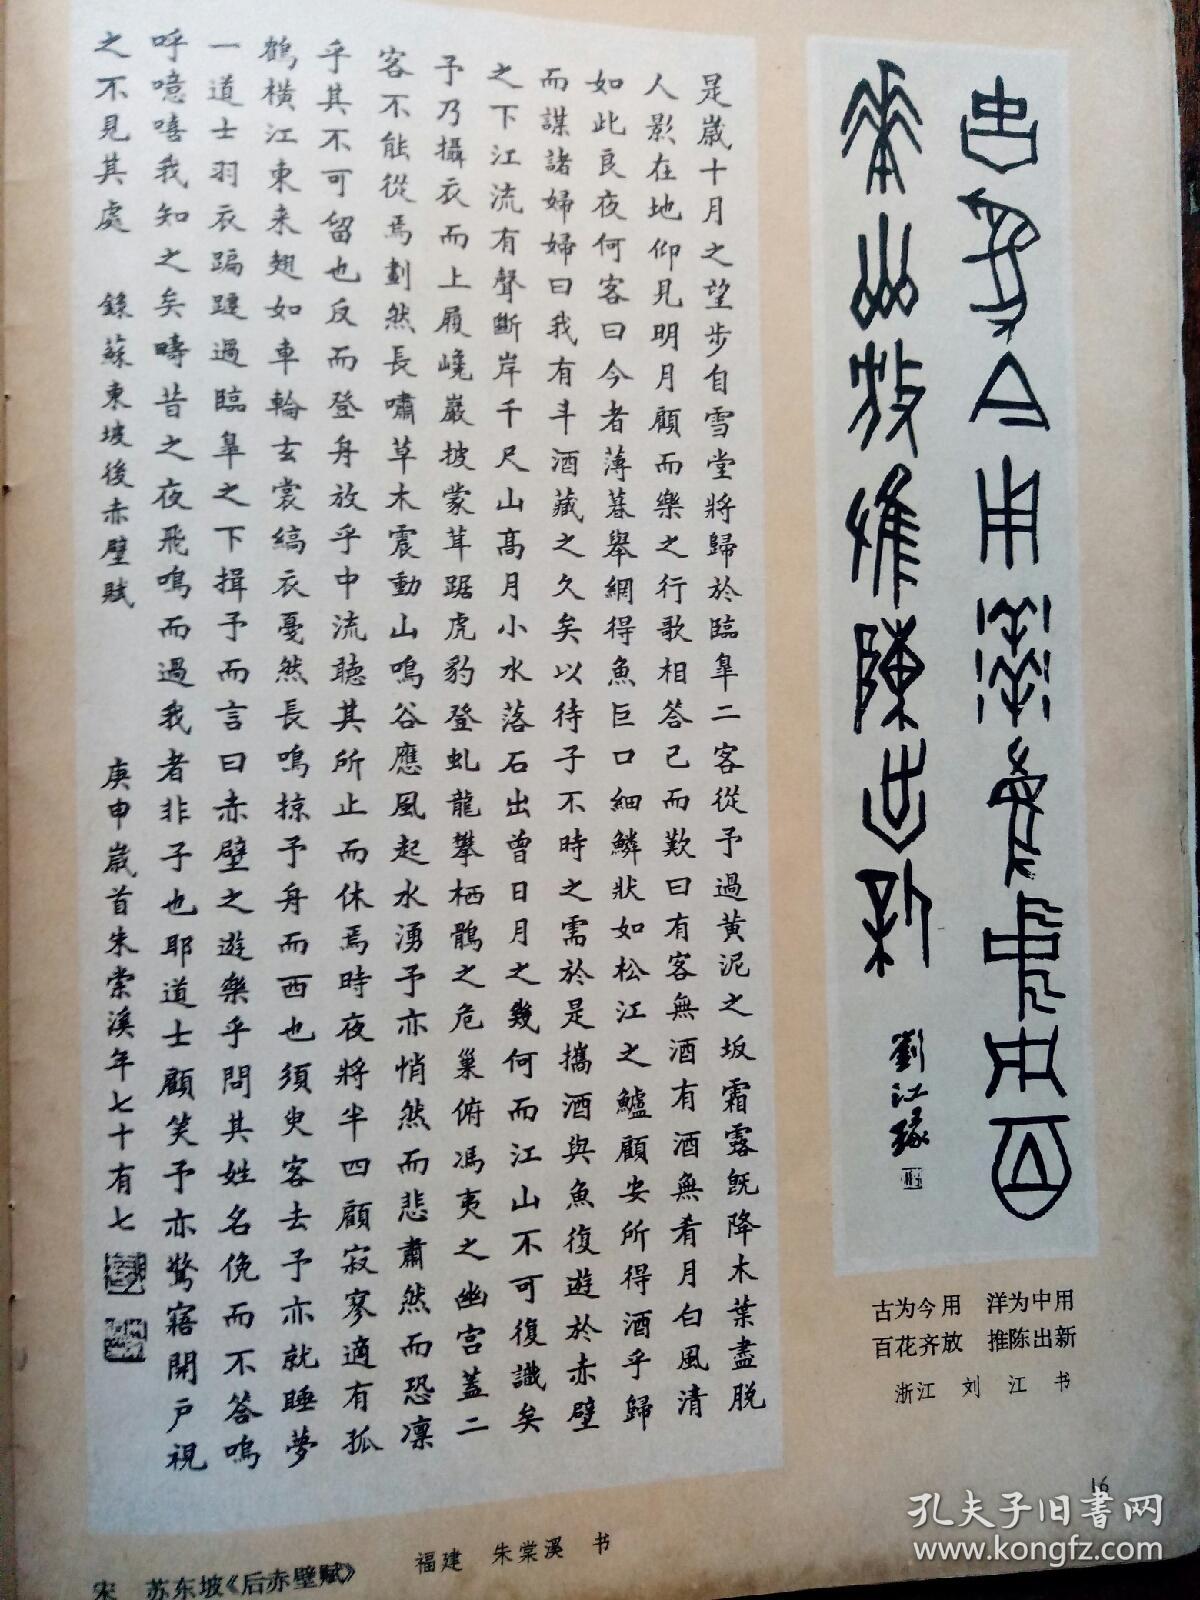 古為今用洋為中用百
華齊放推陳出新
劉江篆
古为今用 洋为中用
百花齐放 推陈出新
浙江 刘 江 书
是歲十月之望步自雪堂將歸於臨皋二客從予過黃泥之坂霜露既降木葉盡脫
人影在地仰見明月顧而樂之行歌相答已而歎曰有客無酒有酒無肴月白風清
如此良夜何客曰今者薄暮舉網得魚巨口細鱗狀如松江之鱸顧安所得酒乎歸
而謀諸婦婦曰我有斗酒藏之久矣以待子不時之需於是攜酒與魚復遊於赤壁
之下江流有聲斷岸千尺山高月小水落石出曾日月之幾何而江山不可復識矣
予乃攝衣而上履巉巖披蒙茸踞虎豹登虬龍攀栖鶻之危巢俯馮夷之幽宮蓋二
客不能從焉劃然長嘯草木震動山鳴谷應風起水湧予亦悄然而悲肅然而恐凜
乎其不可留也反而登舟放乎中流聽其所止而休焉時夜將半四顧寂寥適有孤
鶴橫江東来翅如車輪玄裳縞衣戛然長鳴掠予舟而西也須臾客去予亦就睡夢
一道士羽衣蹁躚過臨皋之下揖予而言曰赤壁之遊樂乎問其姓名俛而不答嗚
呼噫嘻我知之矣疇昔之夜飛鳴而過我者非子也耶道士顧笑予亦驚寤開戶視
之不見其處 錄蘇東坡後赤壁賦 庚申歲首朱棠溪年七十有七
宋 苏东坡《后赤壁赋》 福建 朱棠溪 书
16
孔夫子旧书网
www.kongfz.com